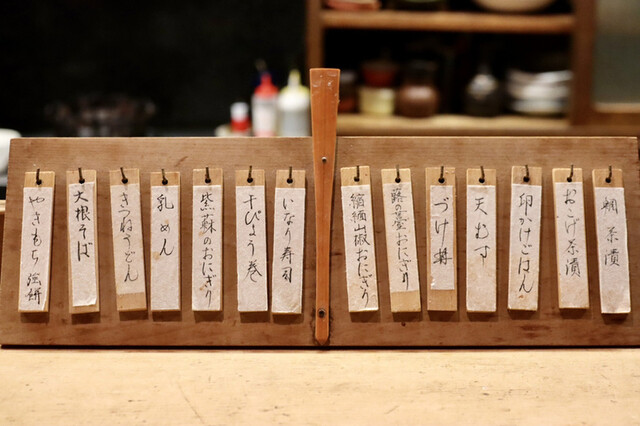 鯛茶漬
おこげ茶漬
卵かけごはん
天むす
づけ丼
蕗の薹おにぎり
縮緬山椒おにぎり
いなり寿司
干ぴょう巻
紫蘇のおにぎり
乳めん
きつねうどん
大根そば
やきもち